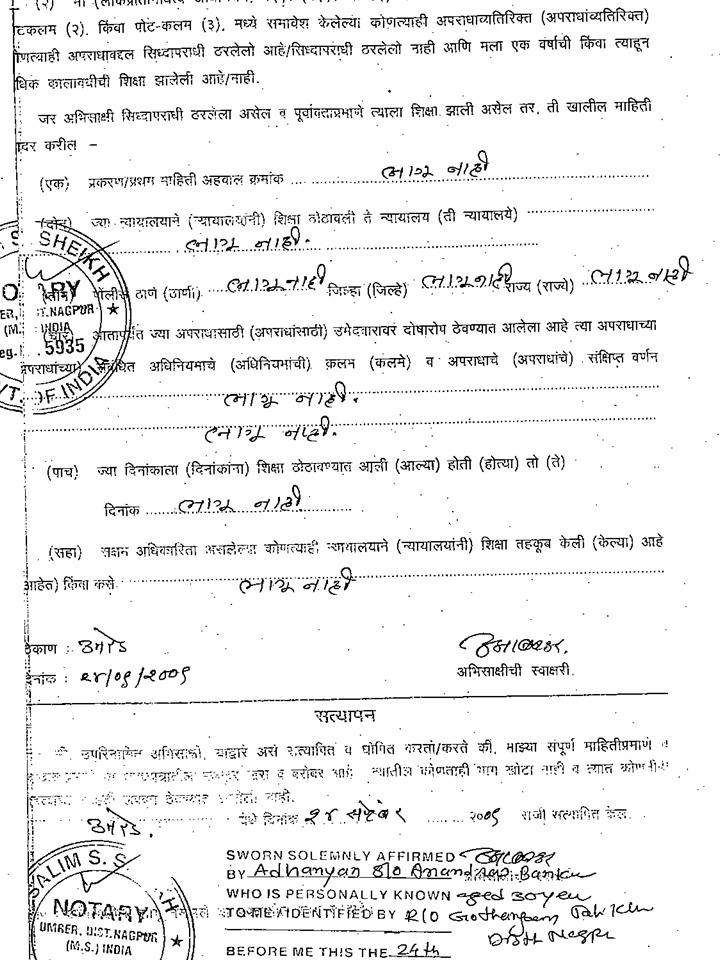 (२) मी (लोकप्रतिनिधित्व
टकलम (२), किंवा पोट-कलम (३), मध्ये समावेश केलेल्या कोणत्याही अपराधाव्यतिरिक्त (अपराधांव्यतिरिक्त)
णत्याही अपराधाबद्दल सिध्दापराधी ठरलेलो आहे/सिध्दापराधी ठरलेलो नाही आणि मला एक वर्षाची किंवा त्याहून
धिक कालावधीची शिक्षा झालेली आहे/नाही.
जर अभिसाक्षी सिध्दापराधी ठरलेला असेल व पूर्वोक्ताप्रमाणे त्याला शिक्षा झाली असेल तर, ती खालील माहिती
ादर करील –
(एक) प्रकरण/प्रथम माहिती अहवाल क्रमांक .... लागू नाही
(दोन) ज्या न्यायालयाने (न्यायालयांनी) शिक्षा ठोठावली ते न्यायालय (ती न्यायालये)
लागू नाही.
(तीन) पोलीस ठाणे (ठाणी) लागू नाही जिल्हा (जिल्हे) लागू नाही राज्य (राज्ये) लागू नाही
(चार) आतापर्यंत ज्या अपराधासाठी (अपराधांसाठी) उमेदवारावर दोषारोप ठेवण्यात आलेला आहे त्या अपराधाच्या
अपराधांच्या संबंधित अधिनियमाचे (अधिनियमांची) कलम (कलमे) व अपराधाचे (अपराधांचे) संक्षिप्त वर्णन
लागू नाही.
लागू नाही.
(पाच) ज्या दिनांकाला (दिनांकांना) शिक्षा ठोठावण्यात आली (आल्या) होती (होत्या) तो (ते)
दिनांक ......... लागू नाही
(सहा) सक्षम अधिकारिता असलेल्या कोणत्याही न्यायालयाने (न्यायालयांनी) शिक्षा तहकूब केली (केल्या) आहे
आहेत) किंवा कसे. लागू नाही
ठिकाण : उमरेड
दिनांक : २४/०९/२००९
अभिसाक्षीची स्वाक्षरी.
सत्यापन
मी, उपरिनिर्दिष्ट अभिसाक्षी, याद्वारे असे सत्यापित व घोषित करतो/करते की, माझ्या संपूर्ण माहितीप्रमाणे व
खरा व बरोबर आहे. त्यातील कोणताही भाग खोटा नाही व त्यात कोणतीही
नाही.
उमरेड. येथे दिनांक २४ सप्टेंबर ........ २००९ रोजी सत्यापित केल.
SWORN SOLEMNLY AFFIRMED
BY Adhanyan S/O Anandrao
WHO IS PERSONALLY KNOWN aged 30 year
TO ME / IDENTIFIED BY R/O
Distt Nagpur
BEFORE ME THIS THE 24th
SHEIKH
NOTARY
DIST. NAGPUR
(M.S.) INDIA
Reg. 5935
GOVT. OF INDIA
SALIM S. S
NOTARY
UMRER, DIST.NAGPUR
(M.S.) INDIA